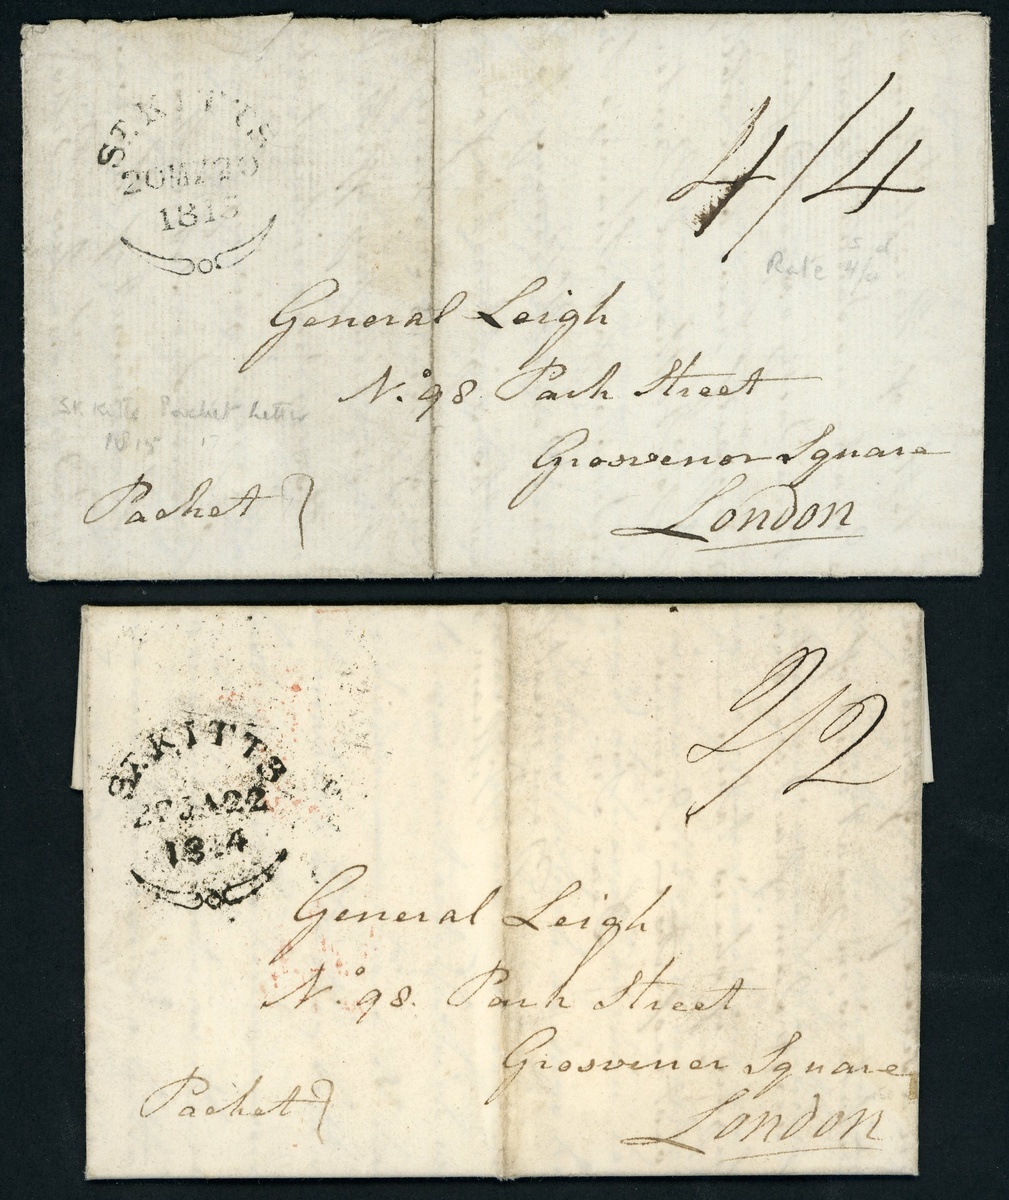 ST. KITTS
20MY20
1815
4/4
s d
Rate 4/
General Leigh
No. 98 Park Street
Grosvenor Square
London
St Kitts Packet Letter
1815
Packet
ST. KITTS
JA22
1814
2/2
General Leigh
No. 98. Park Street
Grosvenor Square
London
Packet